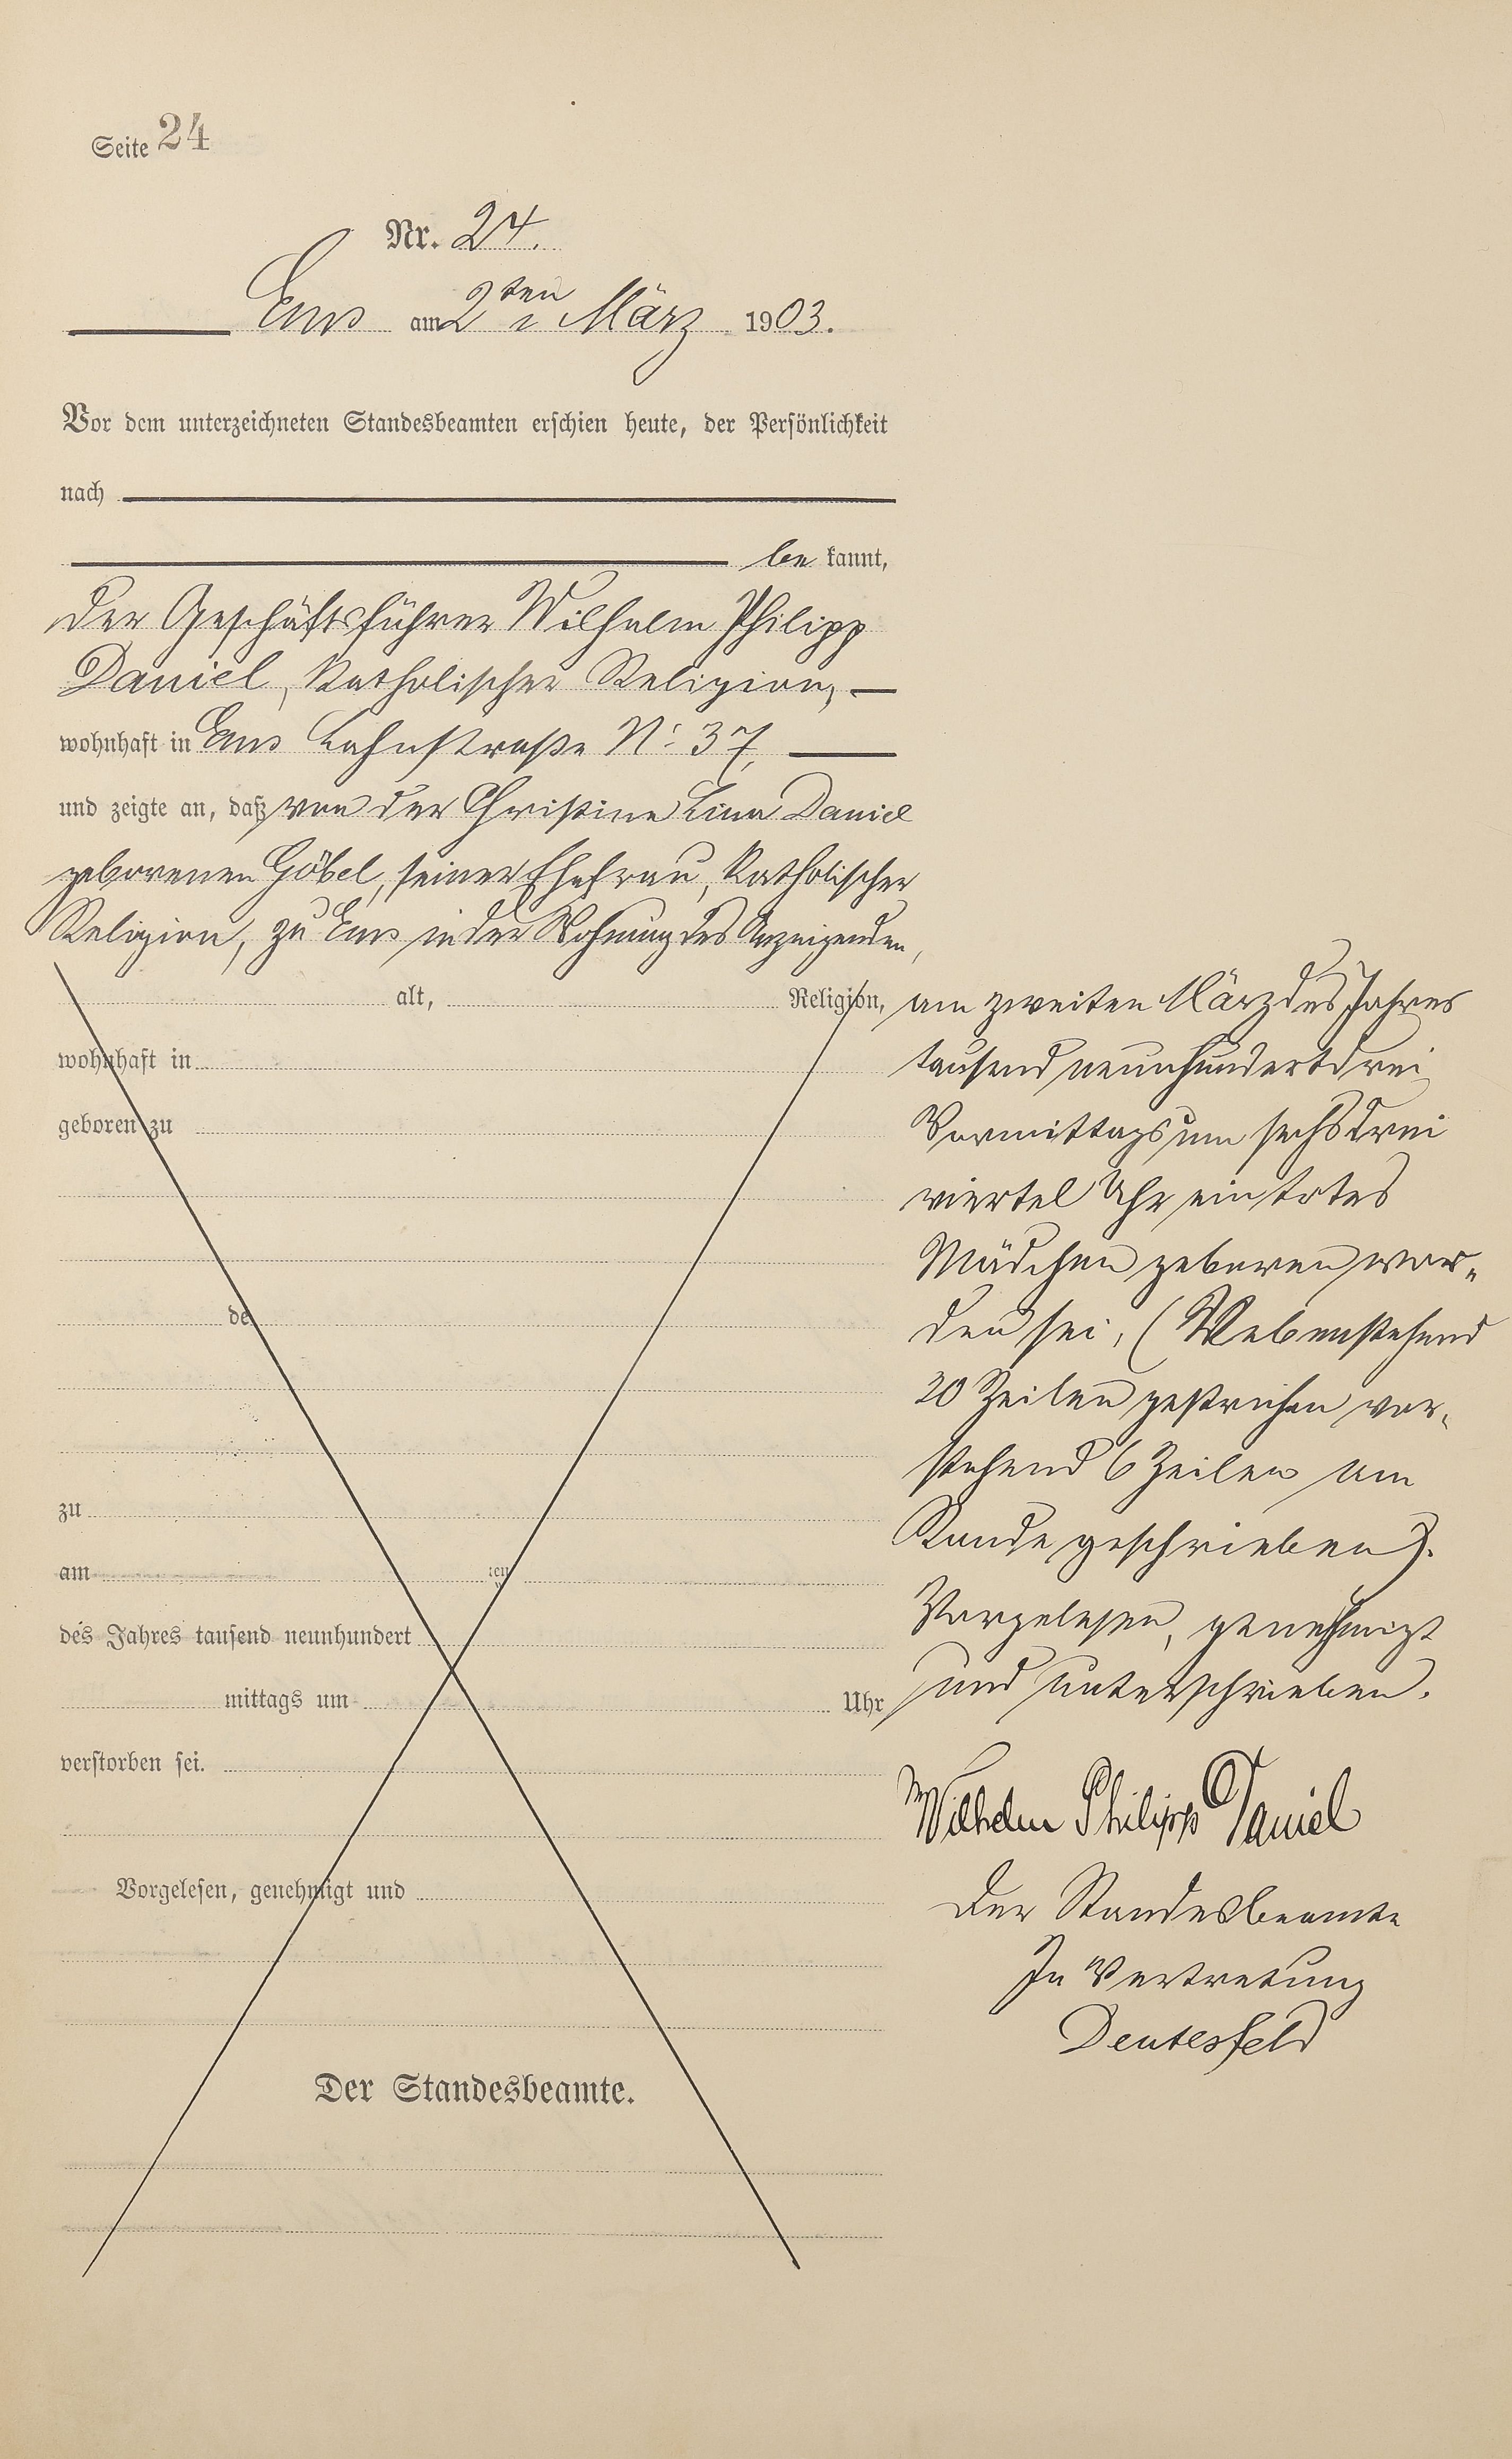 Seite 24
Nr. 24.
Ems am 2ten März 1903.
Vor dem unterzeichneten Standesbeamten erschien heute, der Persönlichkeit
nach
be kannt,
der Geschäftsführer Wilhelm Philipp
Daniel, katholischer Religion,
wohnhaft in Ems Lahnstraße No 37,
und zeigte an, daß von der Christine Lina Daniel
geborenen Göbel, seiner Ehefrau, katholischer
Religion, zu Ems in der Wohnung des Anzeigenden,
alt, Religion,
wohnhaft in
geboren zu
de
zu
am ten
des Jahres tausend neunhundert
mittags um Uhr
verstorben sei.
Vorgelesen, genehmigt und
Der Standesbeamte.
am zweiten März des Jahres
tausend neunhundertdrei
Vormittags um sechs drei
viertel Uhr ein totes
Mädchen geboren wor-
den sei, (Nebenstehend
20 Zeilen gestrichen vor-
stehend 6 Zeilen am
Rande geschrieben).
Vorgelesen, genehmigt
und unterschrieben.
Wilhelm Philipp Daniel
Der Standesbeamte
In Vertretung
Deutesfeld